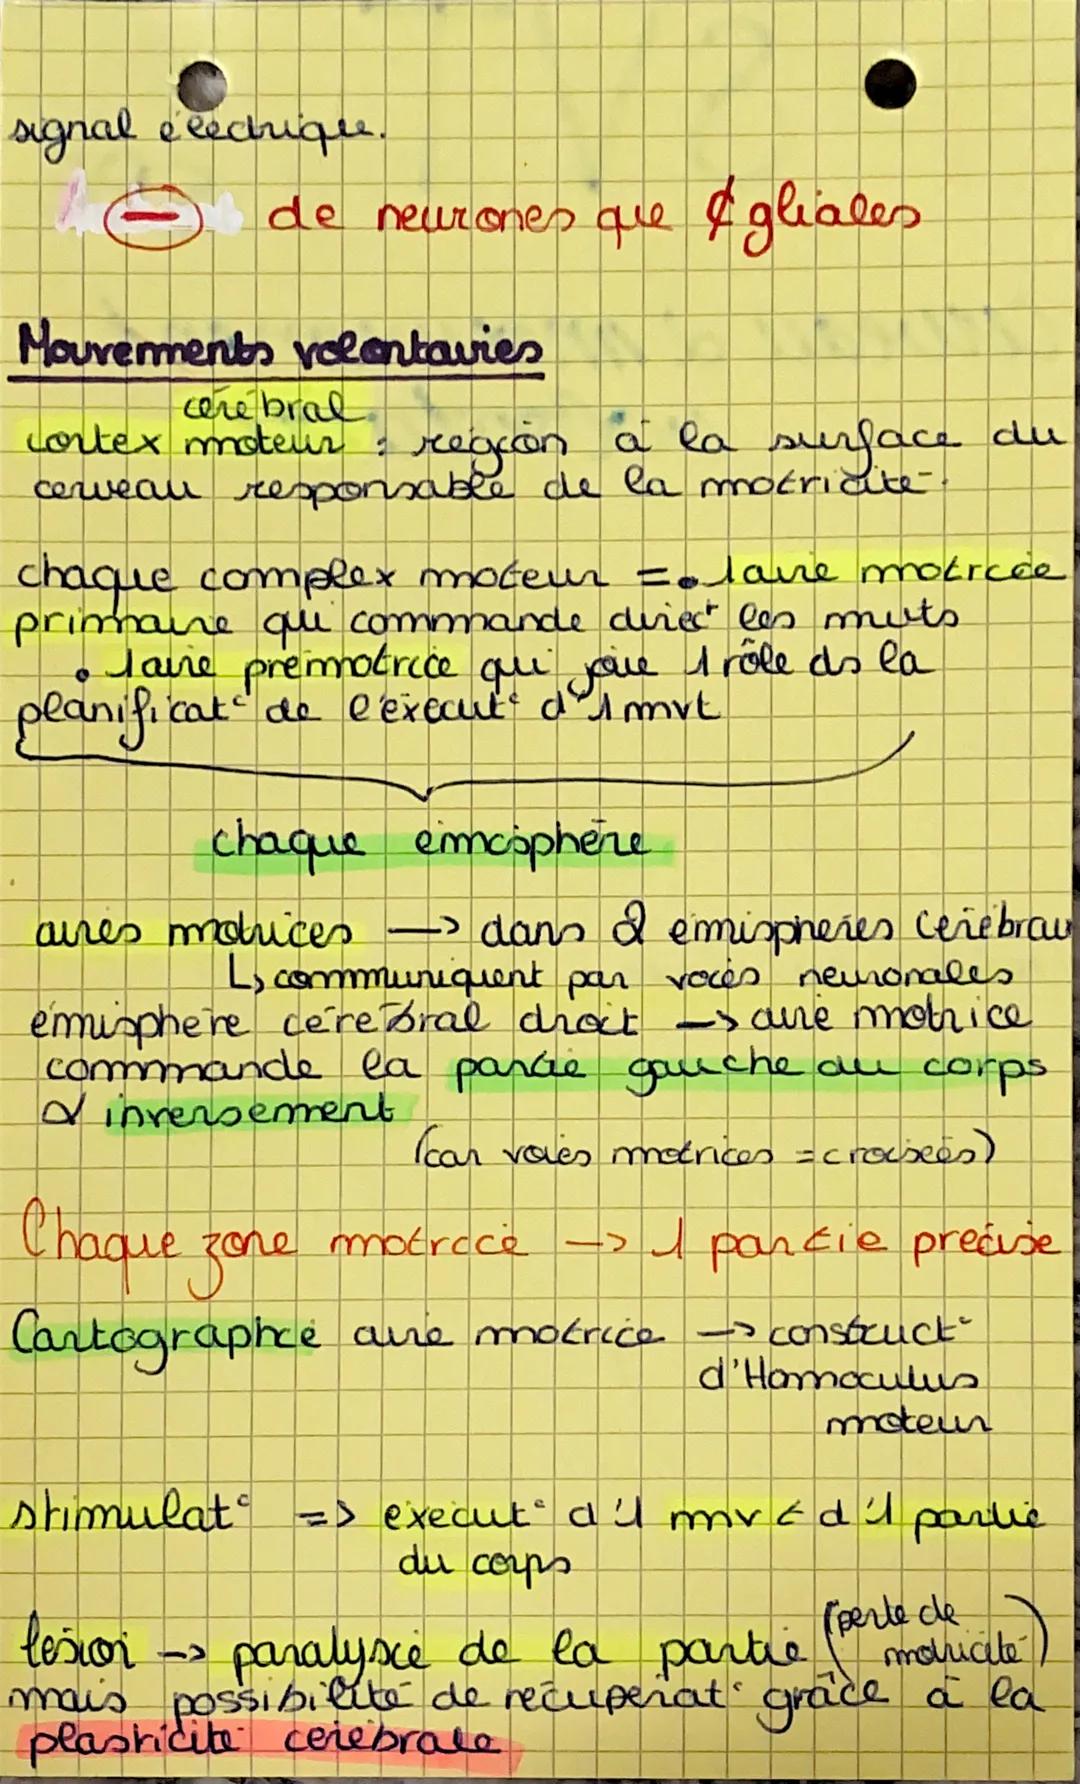 signal électrique.
⊖ de neurones que ¢ gliales
Mouvements volontaires
cérébral
cortex moteur : région à la surface du
cerveau responsable de la motricité.
chaque complex moteur = • 1 aire motrice
primaire qui commande direct les mvts
• 1 aire prémotrice qui joue 1 rôle ds la
planificat° de l'éxécut° d'1 mvt
chaque émisphère
aires motrices → dans 2 émisphères cérébrau
↳ communiquent par voies neuronales
émisphère cérébral droit → aire motrice
commande la partie gauche du corps
& inversement
(car voies motrices = croisées)
Chaque zone motrice → 1 partie précise
Cartographie aire motrice → construct°
d'Homoculus
moteur
stimulat° => éxécut° d'1 mvt d'1 partie
du corps
lésion → paralysie de la partie (perte de
motricité)
mais possibilité de récupérat° grâce à la
plasticité cérébrale